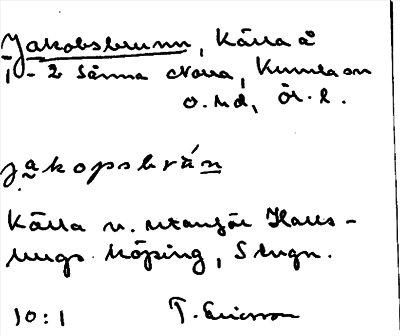 Jakobsbrunn, Källa å
1-2 Sånna Norra, Kumla sn
o. hd, Ör. l.
jakopsbrán
Källa n. utanför Halls-
bergs köping, S lugn.
10:1 T. Ericsson